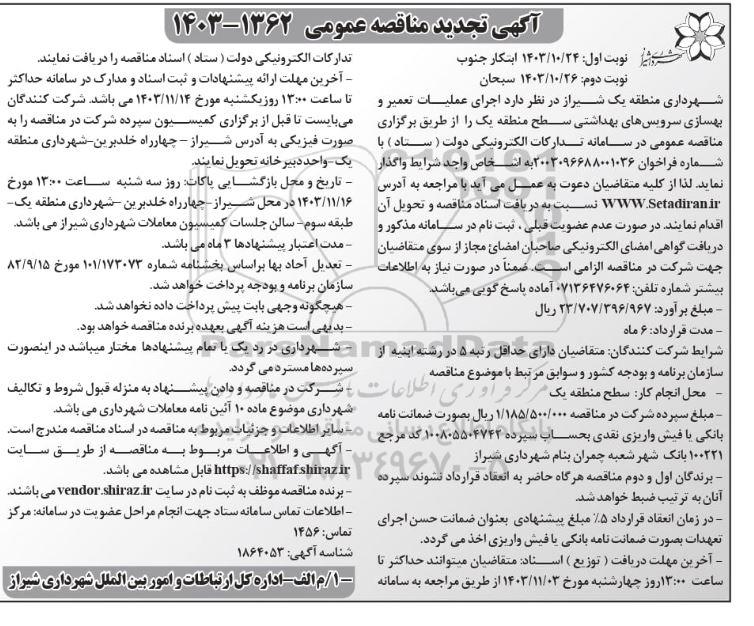 آگهی تجدید مناقصه عمومی ۱۳۶۲-۱۴۰۳
نوبت اول: ۱۴۰۳/۱۰/۲۴ ابتکار جنوب
نوبت دوم: ۱۴۰۳/۱۰/۲۶ سبحان
شهرداری منطقه یک شیراز در نظر دارد اجرای عملیات تعمیر و
بهسازی سرویس‌های بهداشتی سطح منطقه یک را از طریق برگزاری
مناقصه عمومی در سامانه تدارکات الکترونیکی دولت ( ستاد ) با
شماره فراخوان ۲۰۰۳۰۹۶۶۸۸۰۰۱۰۳۶به اشخاص واجد شرایط واگذار
نماید. لذا از کلیه متقاضیان دعوت به عمل می آید با مراجعه به آدرس
WWW.Setadiran.ir نسبت به دریافت اسناد مناقصه و تحویل آن
اقدام نمایند. در صورت عدم عضویت قبلی ، ثبت نام در سامانه مذکور و
دریافت گواهی امضای الکترونیکی صاحبان امضائ مجاز از سوی متقاضیان
جهت شرکت در مناقصه الزامی است. ضمناً در صورت نیاز به اطلاعات
بیشتر شماره تلفن: ۰۷۱۳۶۴۷۶۰۶۴ آماده پاسخ گویی می‌باشد.
- مبلغ برآورد: ۲۳/۷۰۷/۳۹۶/۹۶۷ ریال
- مدت قرارداد: ۶ ماه
شرایط شرکت کنندگان: متقاضیان دارای حداقل رتبه ۵ در رشته ابنیه از
سازمان برنامه و بودجه کشور و سوابق مرتبط با موضوع مناقصه
- محل انجام کار: سطح منطقه یک
- مبلغ سپرده شرکت در مناقصه ۱/۱۸۵/۵۰۰/۰۰۰ ریال بصورت ضمانت نامه
بانکی یا فیش واریزی نقدی بحساب سپرده ۱۰۰۸۰۵۵۰۴۷۴۲ کد مرجع
۱۰۰۲۲۱ بانک شهر شعبه چمران بنام شهرداری شیراز
- برندگان اول و دوم مناقصه هرگاه حاضر به انعقاد قرارداد نشوند سپرده
آنان به ترتیب ضبط خواهد شد.
- در زمان انعقاد قرارداد ۵% مبلغ پیشنهادی بعنوان ضمانت حسن اجرای
تعهدات بصورت ضمانت نامه بانکی یا فیش واریزی اخذ می گردد.
- آخرین مهلت دریافت ( توزیع ) اسناد: متقاضیان میتوانند حداکثر تا
ساعت ۱۳:۰۰روز چهارشنبه مورخ ۱۴۰۳/۱۱/۰۳ از طریق مراجعه به سامانه
تدارکات الکترونیکی دولت ( ستاد ) اسناد مناقصه را دریافت نمایند.
- آخرین مهلت ارائه پیشنهادات و ثبت اسناد و مدارک در سامانه حداکثر
تا ساعت ۱۳:۰۰ روز یکشنبه مورخ ۱۴۰۳/۱۱/۱۴ می باشد. شرکت کنندگان
می‌بایست تا قبل از برگزاری کمیسیون سپرده شرکت در مناقصه را به
صورت فیزیکی به آدرس شیراز - چهارراه خلدبرین-شهرداری منطقه
یک-واحددبیرخانه تحویل نمایند.
- تاریخ و محل بازگشایی پاکات: روز سه شنبه ساعت ۱۳:۰۰ مورخ
۱۴۰۳/۱۱/۱۶ در محل شیراز -چهارراه خلدبرین -شهرداری منطقه یک-
طبقه سوم- سالن جلسات کمیسیون معاملات شهرداری شیراز می باشد.
- مدت اعتبار پیشنهادها ۳ ماه می باشد.
- تعدیل آحاد بها براساس بخشنامه شماره ۱۰۱/۱۷۳۰۷۳ مورخ ۸۲/۹/۱۵
سازمان برنامه و بودجه پرداخت خواهد شد.
- هیچگونه وجهی بابت پیش پرداخت داده نخواهد شد.
- بدیهی است هزینه آگهی بعهده برنده مناقصه خواهد بود.
- شهرداری در رد یک یا تمام پیشنهادها مختار میباشد در اینصورت
سپرده‌ها مسترد می گردد.
- شرکت در مناقصه و دادن پیشنهاد به منزله قبول شروط و تکالیف
شهرداری موضوع ماده ۱۰ آئین نامه معاملات شهرداری می باشد.
- سایر اطلاعات و جزئیات مربوط به مناقصه در اسناد مناقصه مندرج است.
- آگهی و اطلاعات مربوط به مناقصه از طریق سایت
https://shaffaf.shiraz.ir قابل مشاهده می باشد.
- برنده مناقصه موظف به ثبت نام در سایت vendor.shiraz.ir می باشند.
- اطلاعات تماس سامانه ستاد جهت انجام مراحل عضویت در سامانه: مرکز
تماس: ۱۴۵۶
شناسه آگهی: ۱۸۶۴۰۵۳
۱-/م الف-اداره کل ارتباطات و امور بین الملل شهرداری شیراز